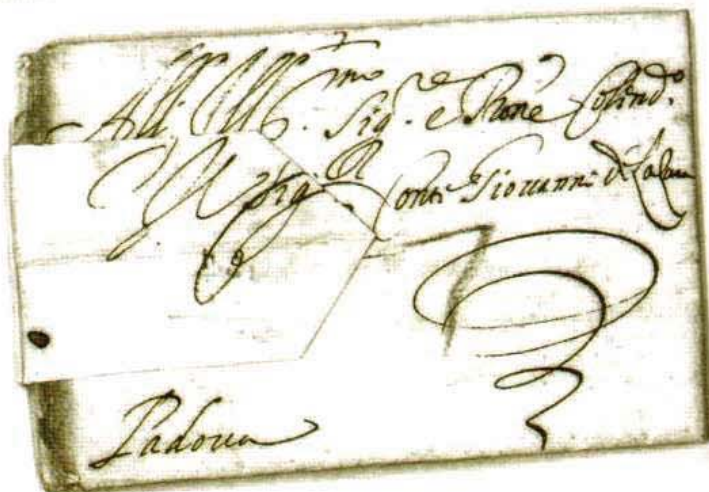 All' Ill.mo Sig.re e Prone Colend.o
Il Sig.r Conte Giovanni di
Padova